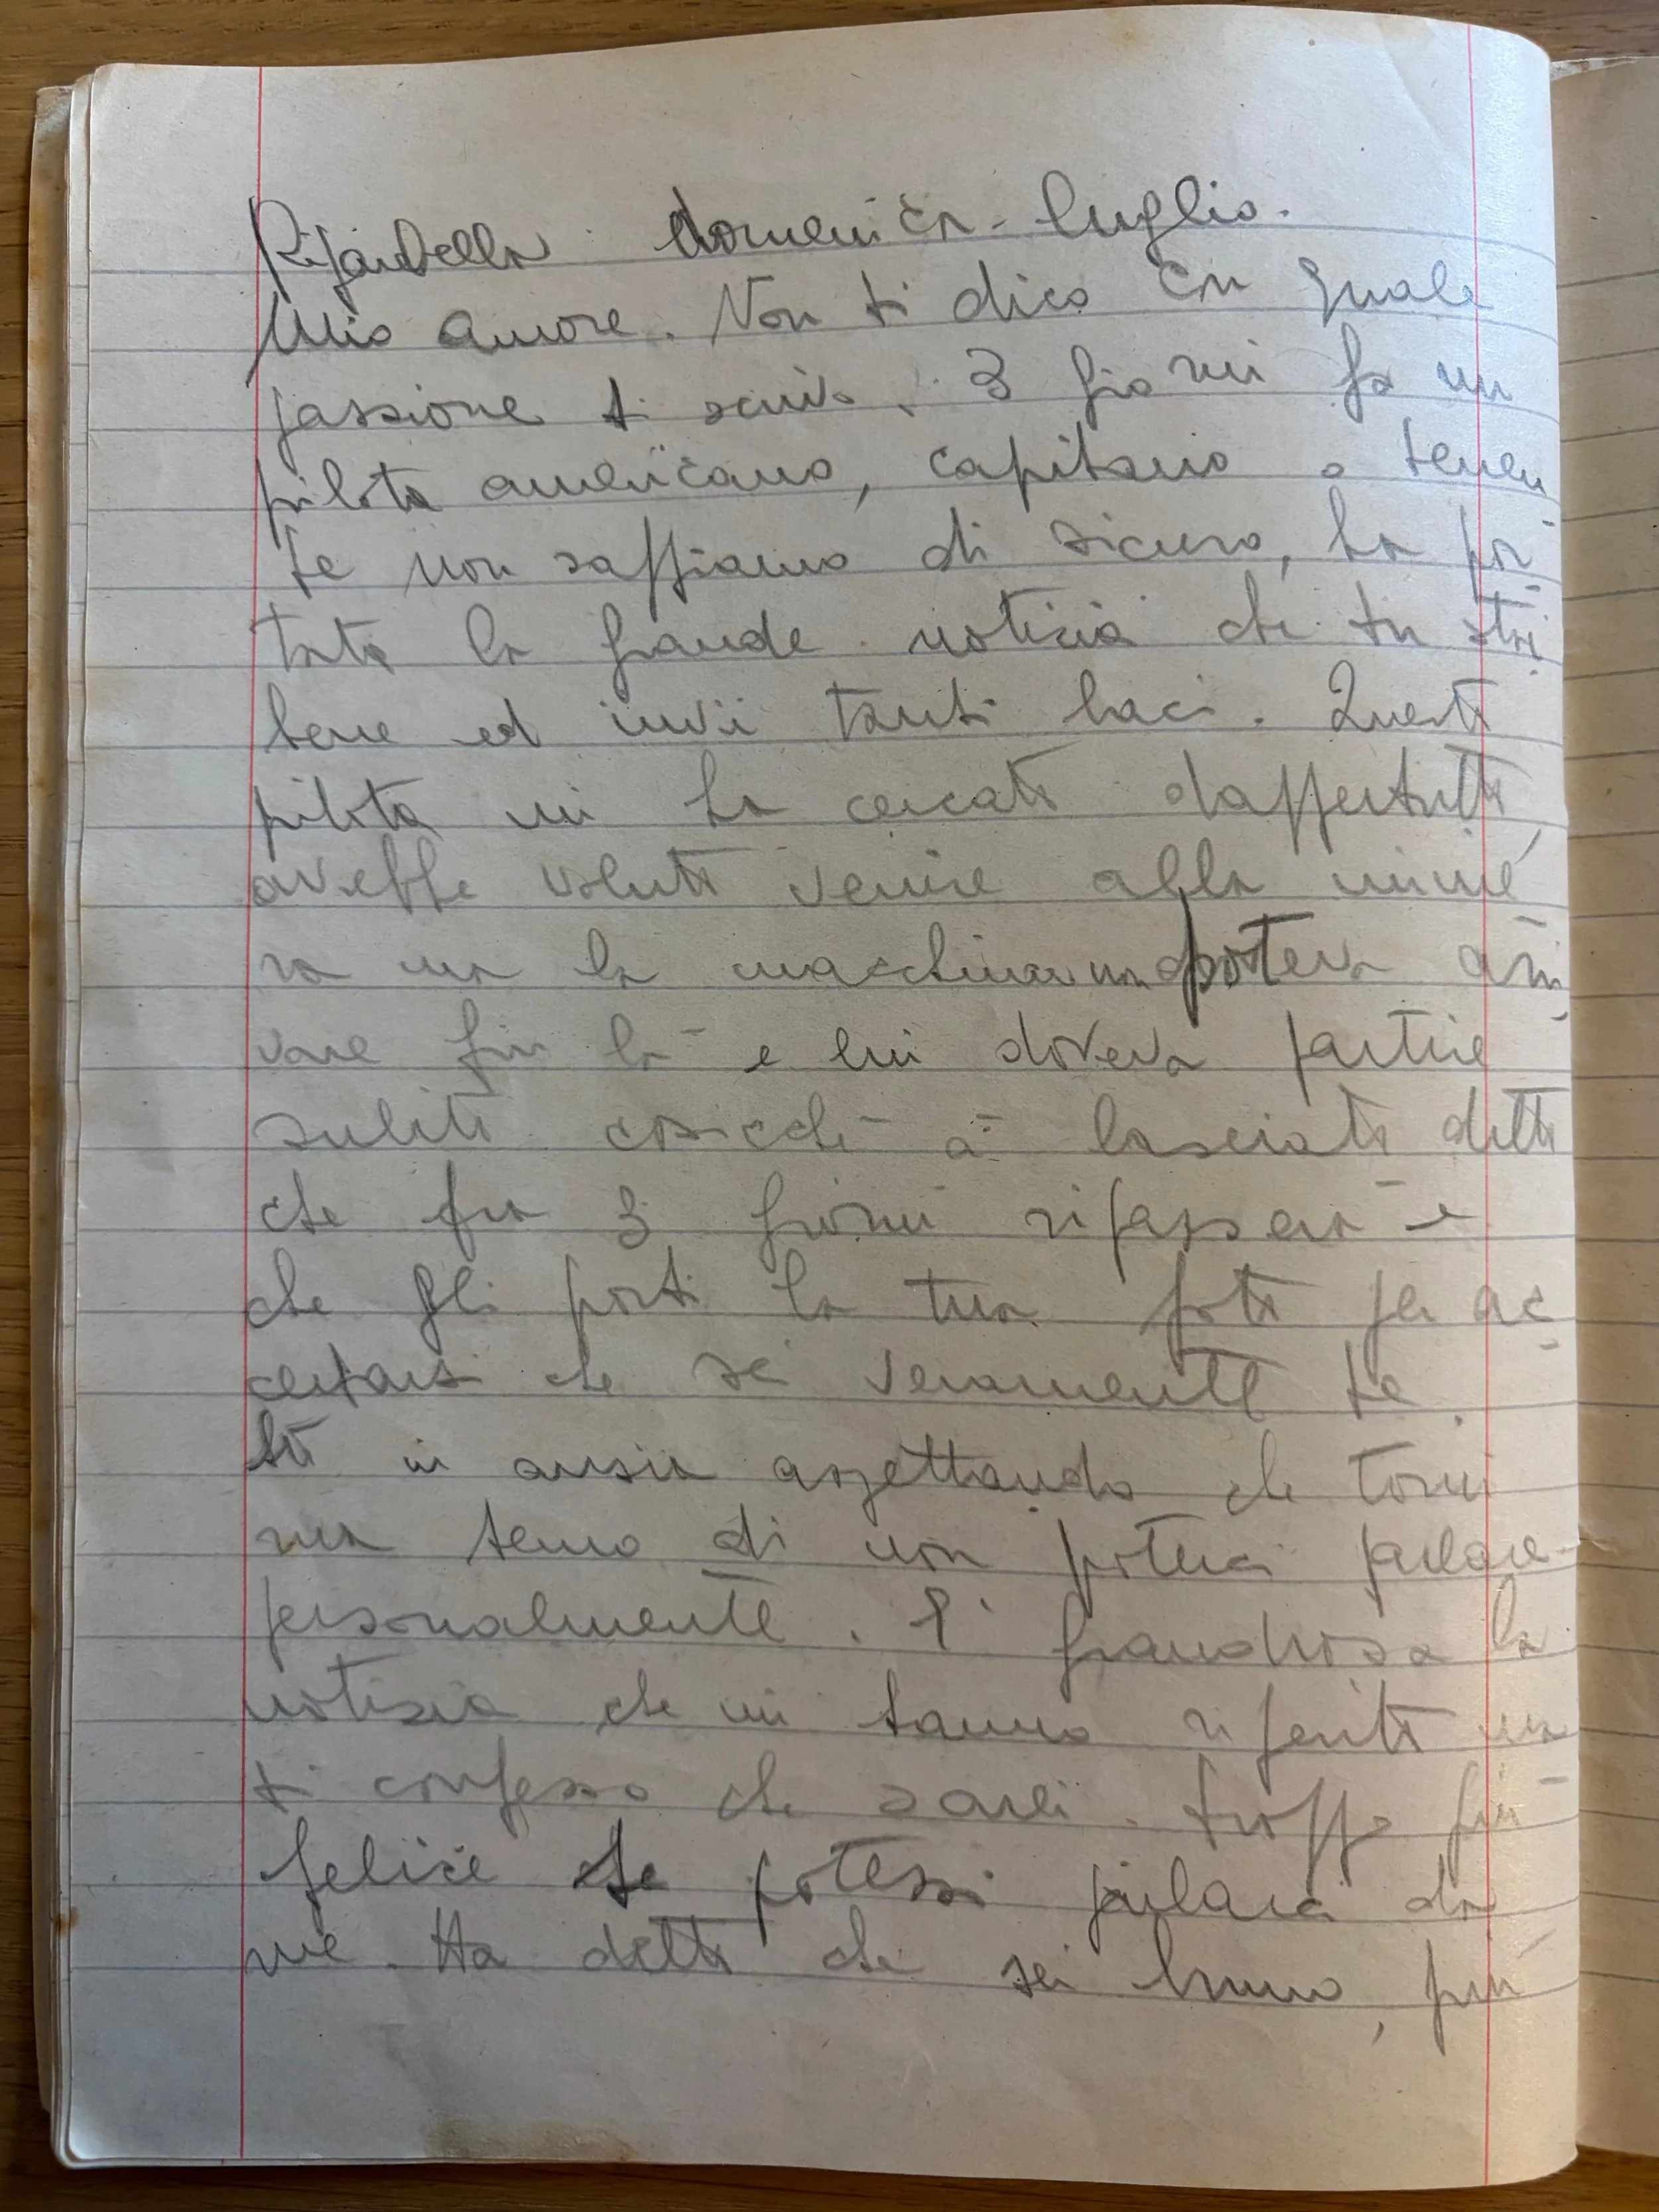 Riparbella domenica - luglio.
Mio amore. Non ti dico con quale
passione ti scrivo. 3 giorni fa un
pilota americano, capitano o tenen
te non sappiamo di sicuro, ha por
tato la grande noticia che tu stai
bene ed invii tanti baci. Questo
pilota mi ha cercato dappertutto,
avrebbe voluto venire alla minie
ra ma la macchina non poteva arri
vare fin là e lui doveva partire
subito cosicchè à lasciato detto
che fra 3 giorni ripasserà e
che gli porti la tua foto per ac
certarsi che sei veramente te.
Sto in ansia aspettando che torni
ma temo di non poterci parlare
personalmente. E' grandiosa la
notizia che mi hanno riferito ma
ti confesso che sarei troppo più
felice se potessi parlarci da
me. Ha detto che sei bruno, più